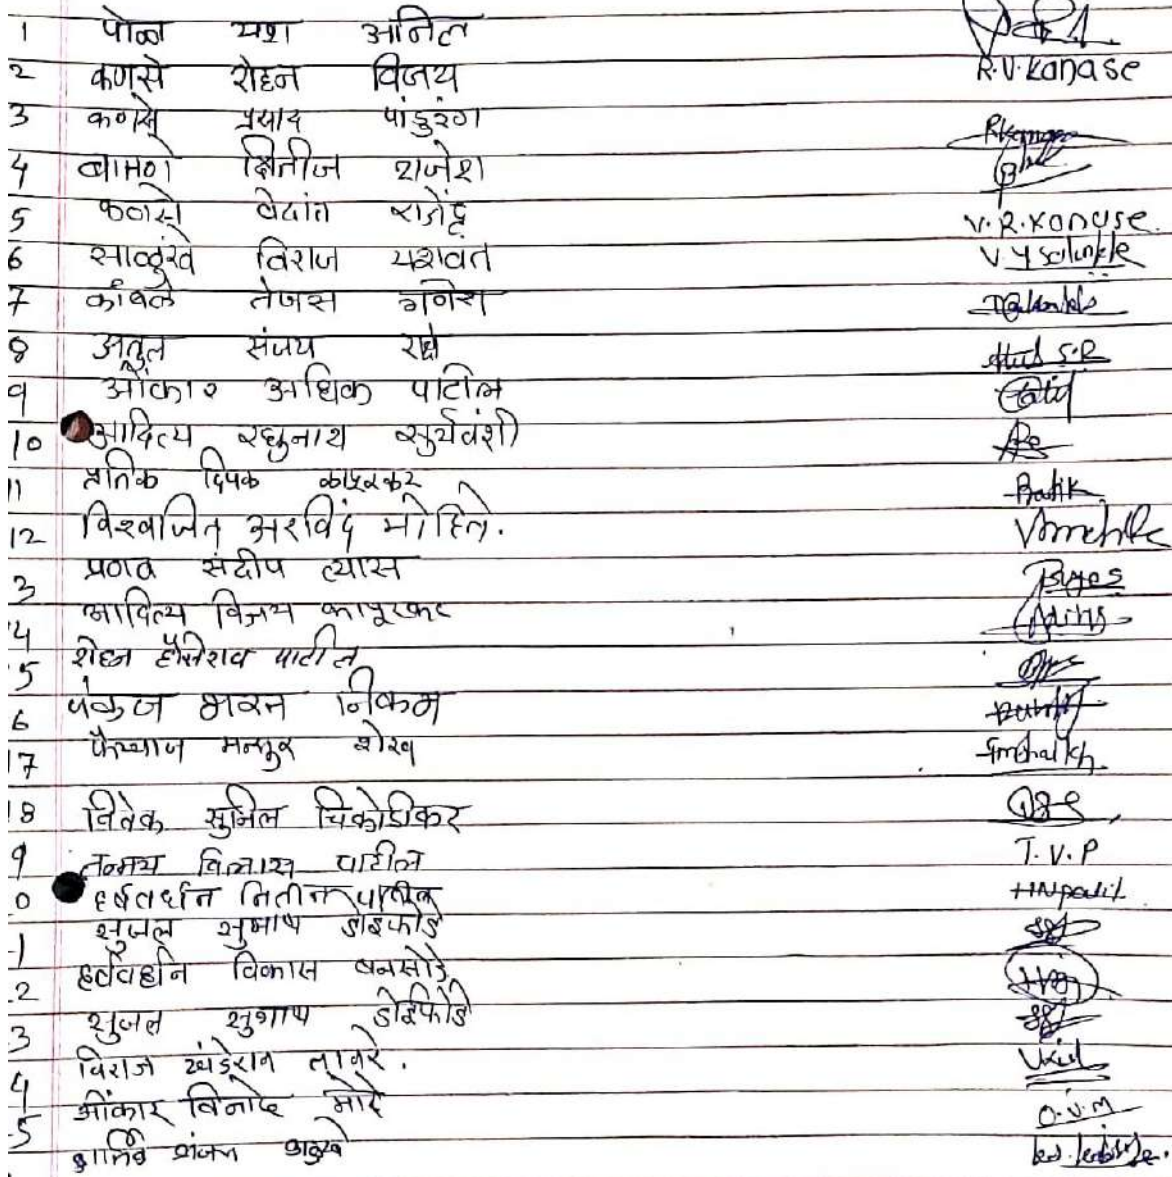 1 पोळ यश अनिल
2 कणसे रोहन विजय R.V.Kanase
3 कणसे प्रसाद पांडुरंग
4 बामणे क्षितीज राजेश
5 कणसे वेदांत राजेंद्र V.R.Kanase.
6 साळुंखे विराज यशवंत V Y Salunkhe
7 कांबळे तेजस गणेश
8 अतुल संजय Atul S.R
9 ओंकार अधिक पाटील Patil
10 आदित्य रघुनाथ सुर्यवंशी
11 प्रतिक दिपक कापूरकर Pratik
12 विश्वजित अरविंद मोहिते. Vamohite
3 प्रणव संदीप व्यास
4 आदित्य विजय कापूरकर
5 रोहन हौसेराव पाटील
6 पंकज भरत निकम
17 फैय्याज मन्सुर शेख Fmshaikh
18 विवेक सुनिल चिकोडीकर
9 तन्मय विलास पाटील T.V.P
0 हर्षवर्धन नितीन पाटील HNpatil
1 सुजल सुभाष डोईफोडे
2 हर्षवर्धन विकास बनसोडे
3 सुजल सुभाष डोईफोडे
4 विराज खंडेराव
5 ओंकार विनोद मोरे O.V.M